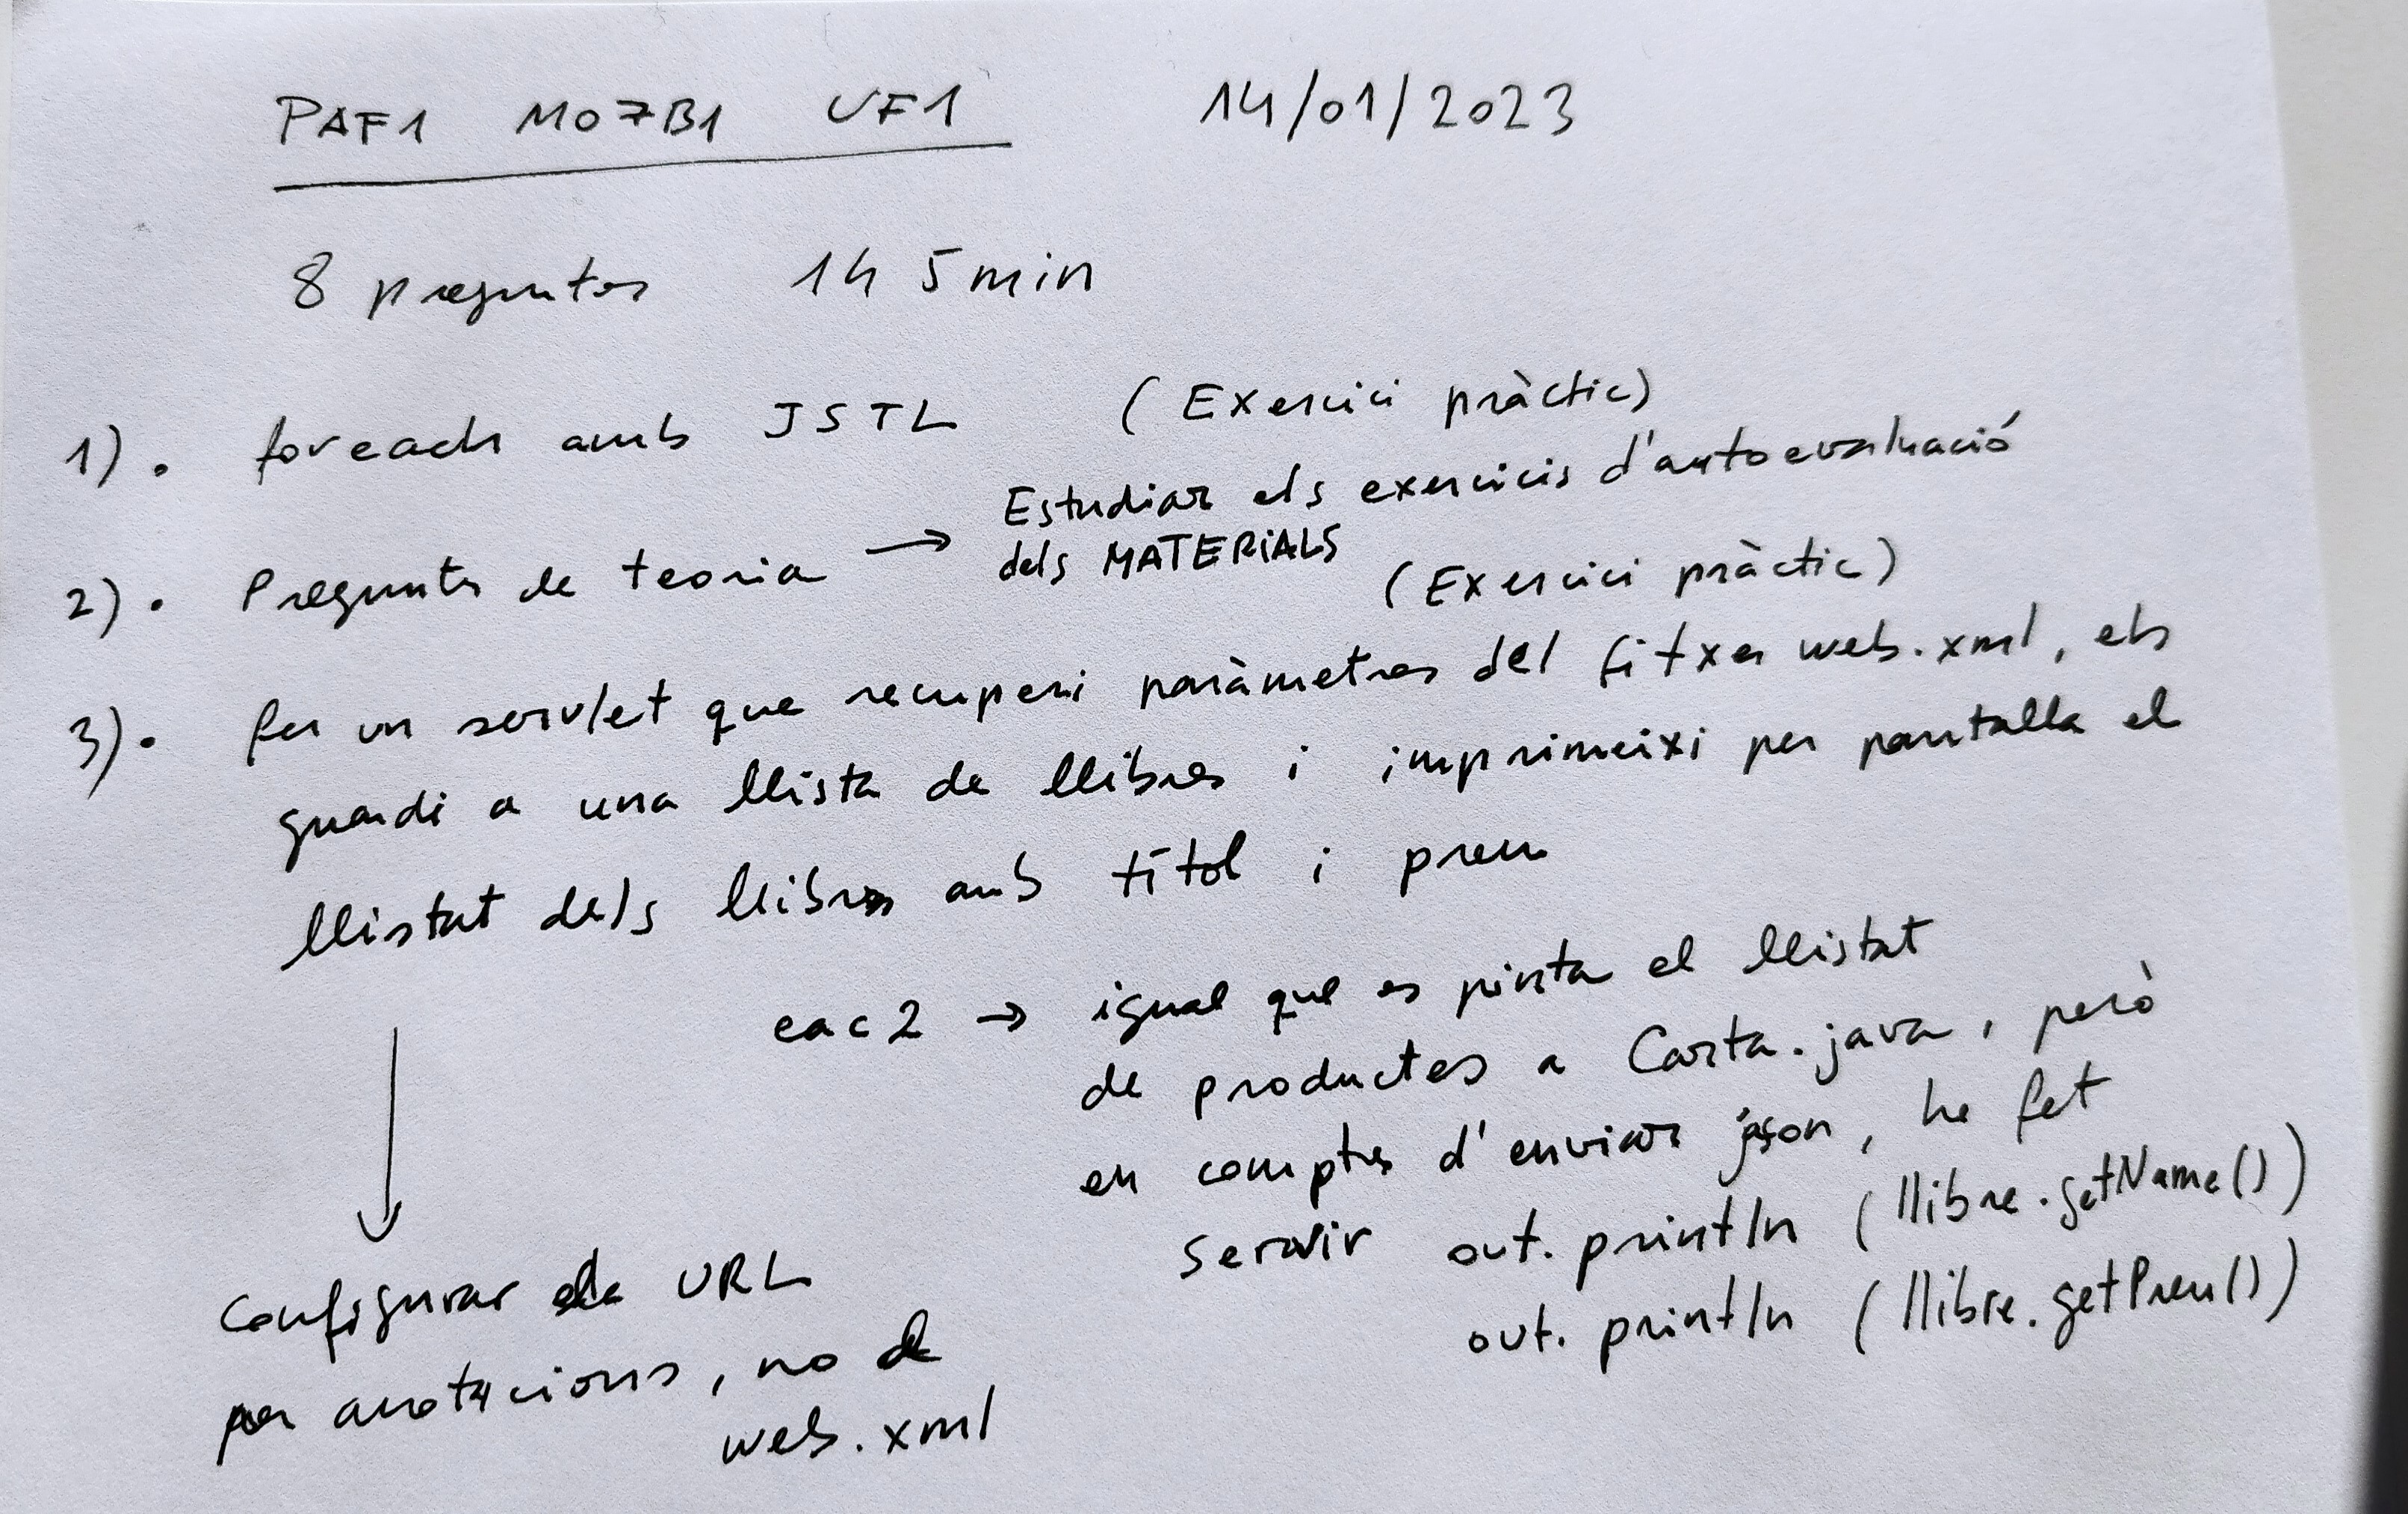 PAF1 M07B1 UF1 14/01/2023
8 preguntes 1h 5min
1). foreach amb JSTL (Exercici pràctic)
2). Preguntes de teoria → Estudiar els exercicis d'autoevaluació
dels MATERIALS
(Exercici pràctic)
3). fer un servlet que recuperi paràmetres del fitxer web.xml, els
guardi a una llista de llibres i imprimeixi per pantalla el
llistat dels llibres amb títol i preu
eac2 → igual que es pinta el llistat
de productes a Carta.java, però
en comptes d'enviar json, he fet
servir out.println (llibre.getName())
out.println (llibre.getPreu())
Configurar la URL
per anotacions, no de
web.xml